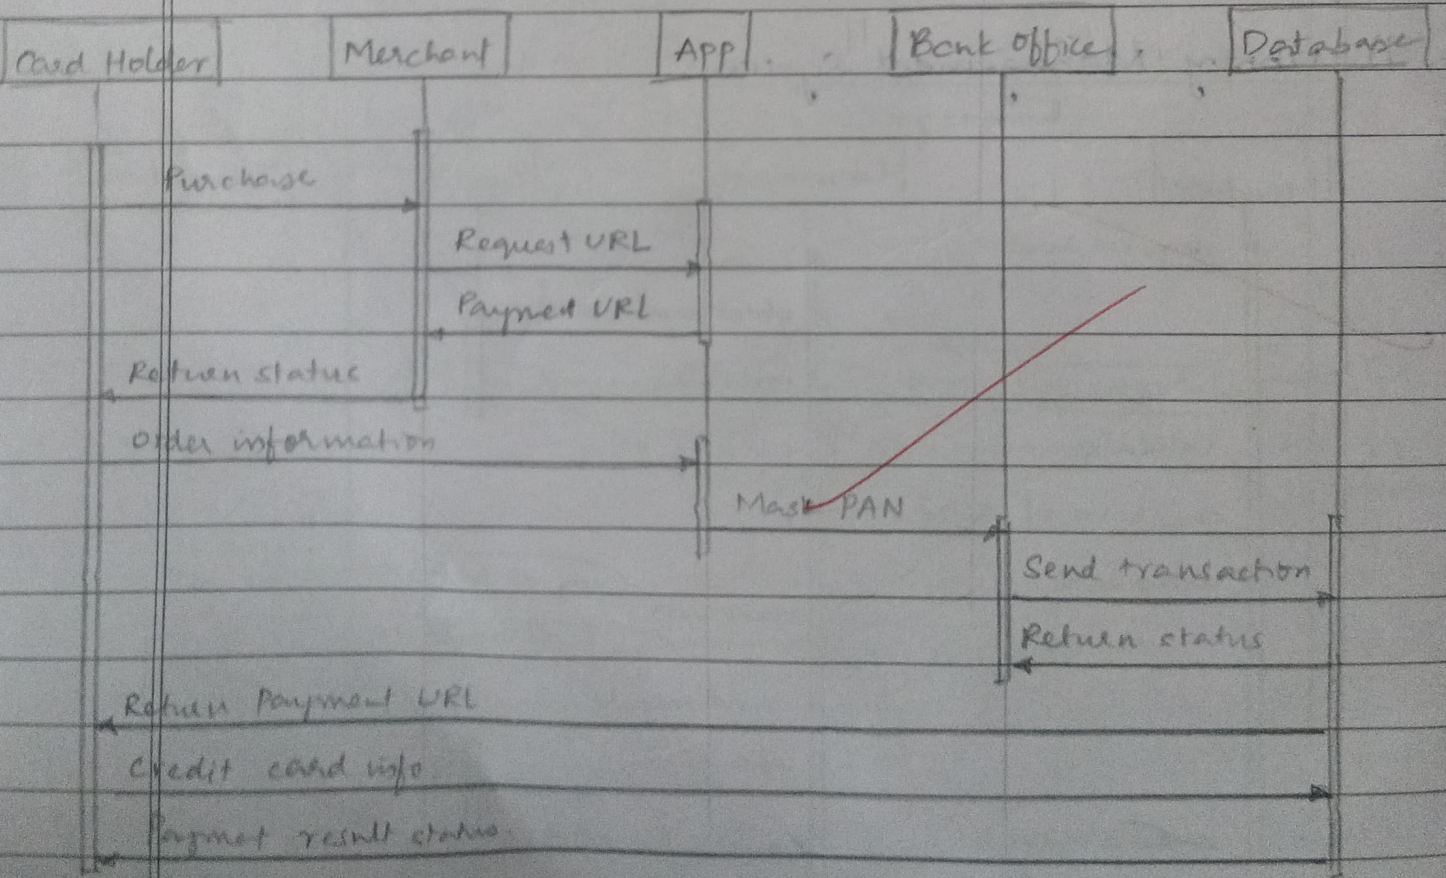 Card Holder Merchant App Bank Office Database
Purchase
Request URL
Payment URL
Return status
Order information
Mask PAN
Send transaction
Return status
Return Payment URL
Credit card info
Paymet result status